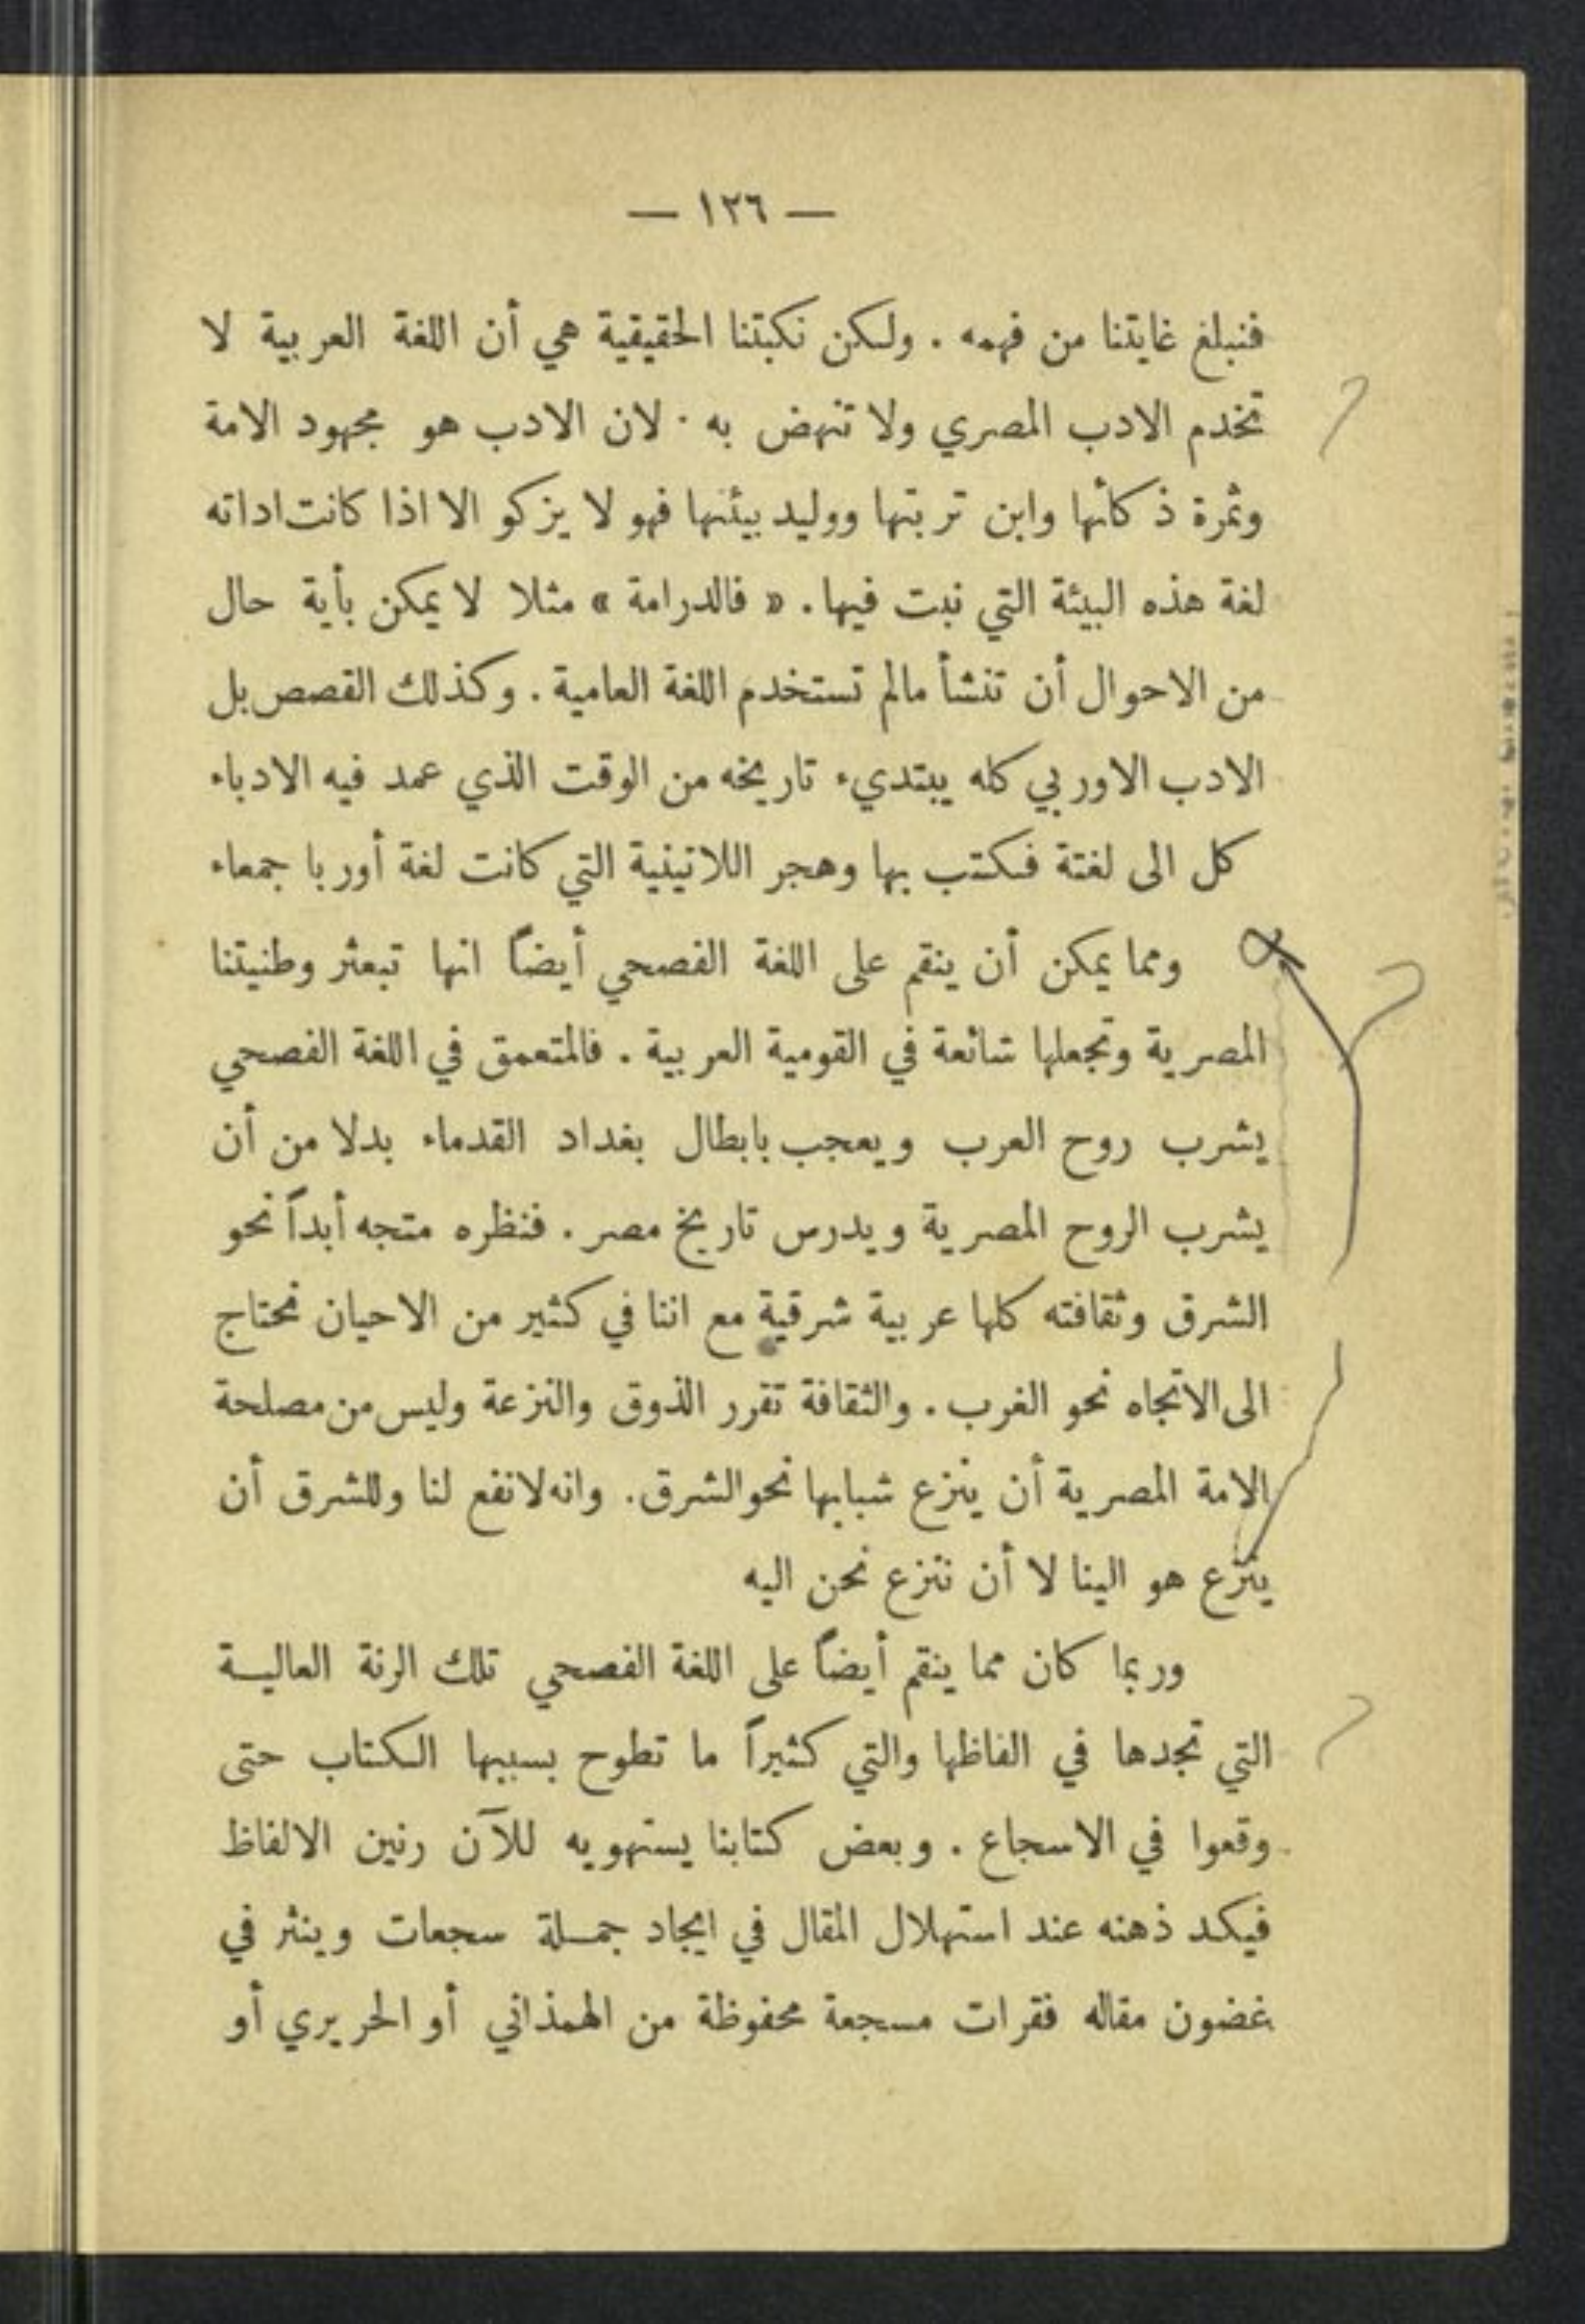 — ١٢٦ —
فنبلغ غايتنا من فهمه . ولكن نكبتنا الحقيقية هي أن اللغة العربية لا
تخدم الادب المصري ولا تنهض به . لان الادب هو مجهود الامة
وثمرة ذكائها وابن تربتها ووليد بيئتها فهو لا يزكو الا اذا كانت اداته
لغة هذه البيئة التي نبت فيها . « فالدرامة » مثلا لا يمكن بأية حال
من الاحوال أن تنشأ مالم تستخدم اللغة العامية . وكذلك القصص بل
الادب الاوربي كله يبتديء تاريخه من الوقت الذي عمد فيه الادباء
كل الى لغتة فكتب بها وهجر اللاتينية التي كانت لغة أوربا جمعاء
ومما يمكن أن ينقم على اللغة الفصحي أيضاً انها تبعثر وطنيتنا
المصرية وتجعلها شائعة في القومية العربية . فالمتعمق في اللغة الفصحي
يشرب روح العرب ويعجب بابطال بغداد القدماء بدلا من أن
يشرب الروح المصرية ويدرس تاريخ مصر . فنظره متجه أبداً نحو
الشرق وثقافته كلها عربية شرقية مع اننا في كثير من الاحيان نحتاج
الى الاتجاه نحو الغرب . والثقافة تقرر الذوق والنزعة وليس من مصلحة
الامة المصرية أن ينزع شبابها نحو الشرق . وانه لانفع لنا وللشرق أن
ينزع هو الينا لا أن ننزع نحن اليه
وربما كان مما ينقم أيضاً على اللغة الفصحي تلك الرنة العالية
التي تجدها في الفاظها والتي كثيراً ما تطوح بسببها الكتاب حتى
وقعوا في الاسجاع . وبعض كتابنا يستهويه للآن رنين الالفاظ
فيكد ذهنه عند استهلال المقال في ايجاد جملة سجعات وينثر في
غضون مقاله فقرات مسجعة محفوظة من الهمذاني أو الحريري أو